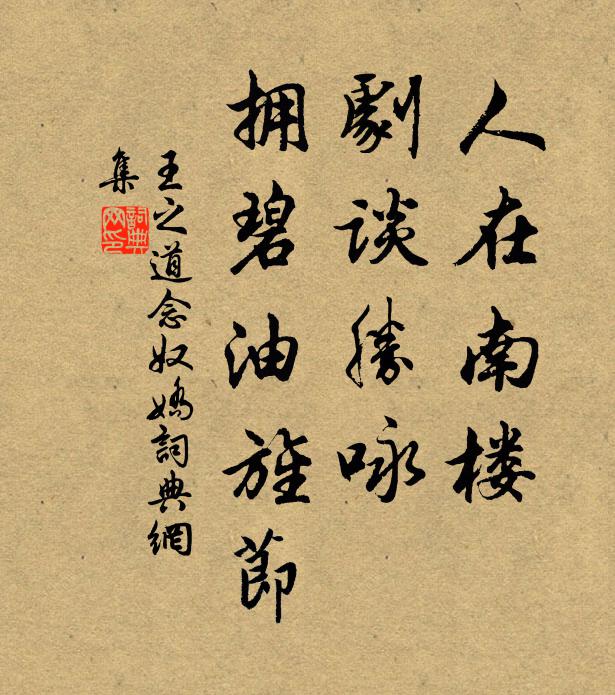 人在南楼
劇談勝咏
拥碧油旌節
王之道念奴嬌詞典網
集
詞典
网印